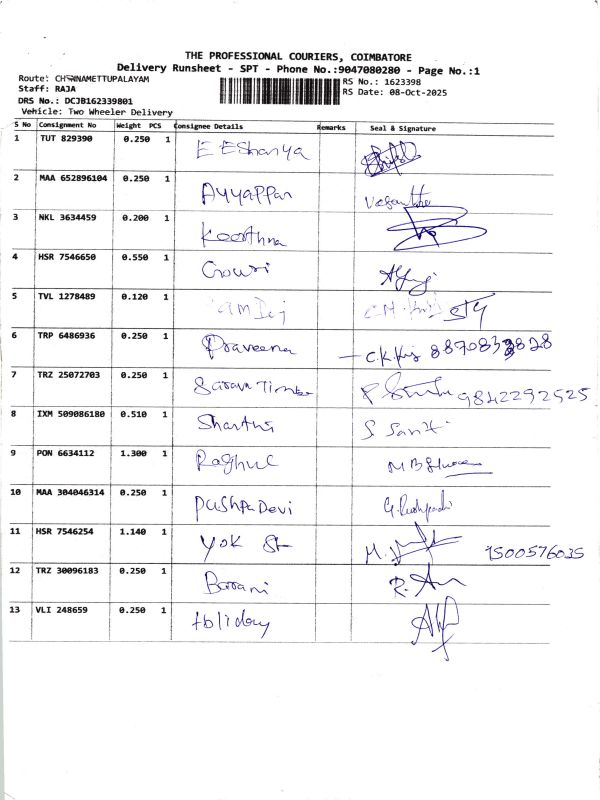 THE PROFESSIONAL COURIERS, COIMBATORE
Delivery Runsheet - SPT - Phone No.:9047080280 - Page No.:1
Route: CHINNAMETTUPALAYAM
RS No.: 1623398
Staff: RAJA
RS Date: 08-Oct-2025
DRS No.: DCJB162339801
Vehicle: Two Wheeler Delivery
S No Consignment No Weight PCS Consignee Details Remarks Seal & Signature
1 TUT 829390 0.250 1 E EShanya
2 MAA 652896104 0.250 1 Ayyappan
3 NKL 3634459 0.200 1
4 HSR 7546650 0.550 1 Gowri
5 TVL 1278489 0.120 1
6 TRP 6486936 0.250 1 Praveena
7 TRZ 25072703 0.250 1 9842292525
8 IXM 509086180 0.510 1 Shanthi
9 PON 6634112 1.300 1 Raghul
10 MAA 304046314 0.250 1 Pushpa Devi
11 HSR 7546254 1.140 1 7500576035
12 TRZ 30096183 0.250 1 Barani
13 VLI 248659 0.250 1 Holiday